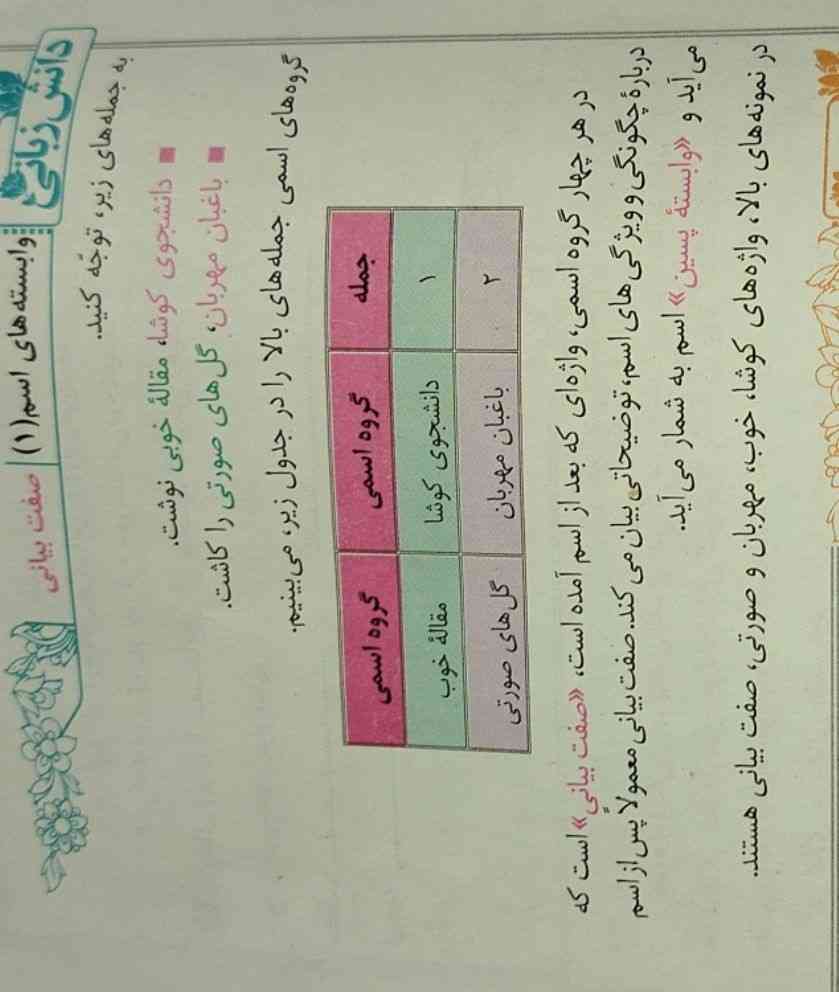 دانش زبانی
وابسته‌های اسم (۱) صفت بیانی
به جمله‌های زیر، توجّه کنید.
■ دانشجوی کوشا، مقالهٔ خوبی نوشت.
■ باغبان مهربان، گل‌های صورتی را کاشت.
گروه‌های اسمی جمله‌های بالا را در جدول زیر، می‌بینیم.
جمله گروه اسمی گروه اسمی
۱ دانشجوی کوشا مقالهٔ خوب
۲ باغبان مهربان گل‌های صورتی
در هر چهار گروه اسمی، واژه‌ای که بعد از اسم آمده است، «صفت بیانی» است که
دربارهٔ چگونگی و ویژگی‌های اسم، توضیحاتی بیان می‌کند. صفت بیانی معمولاً پس از اسم
می‌آید و «وابستهٔ پسین» اسم به شمار می‌آید.
در نمونه‌های بالا، واژه‌های کوشا، خوب، مهربان و صورتی، صفت بیانی هستند.